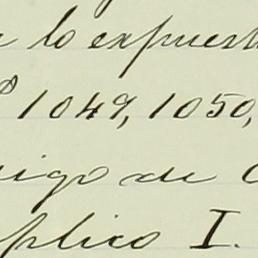 lo expuest
1049, 1050,
igo de
plico I.